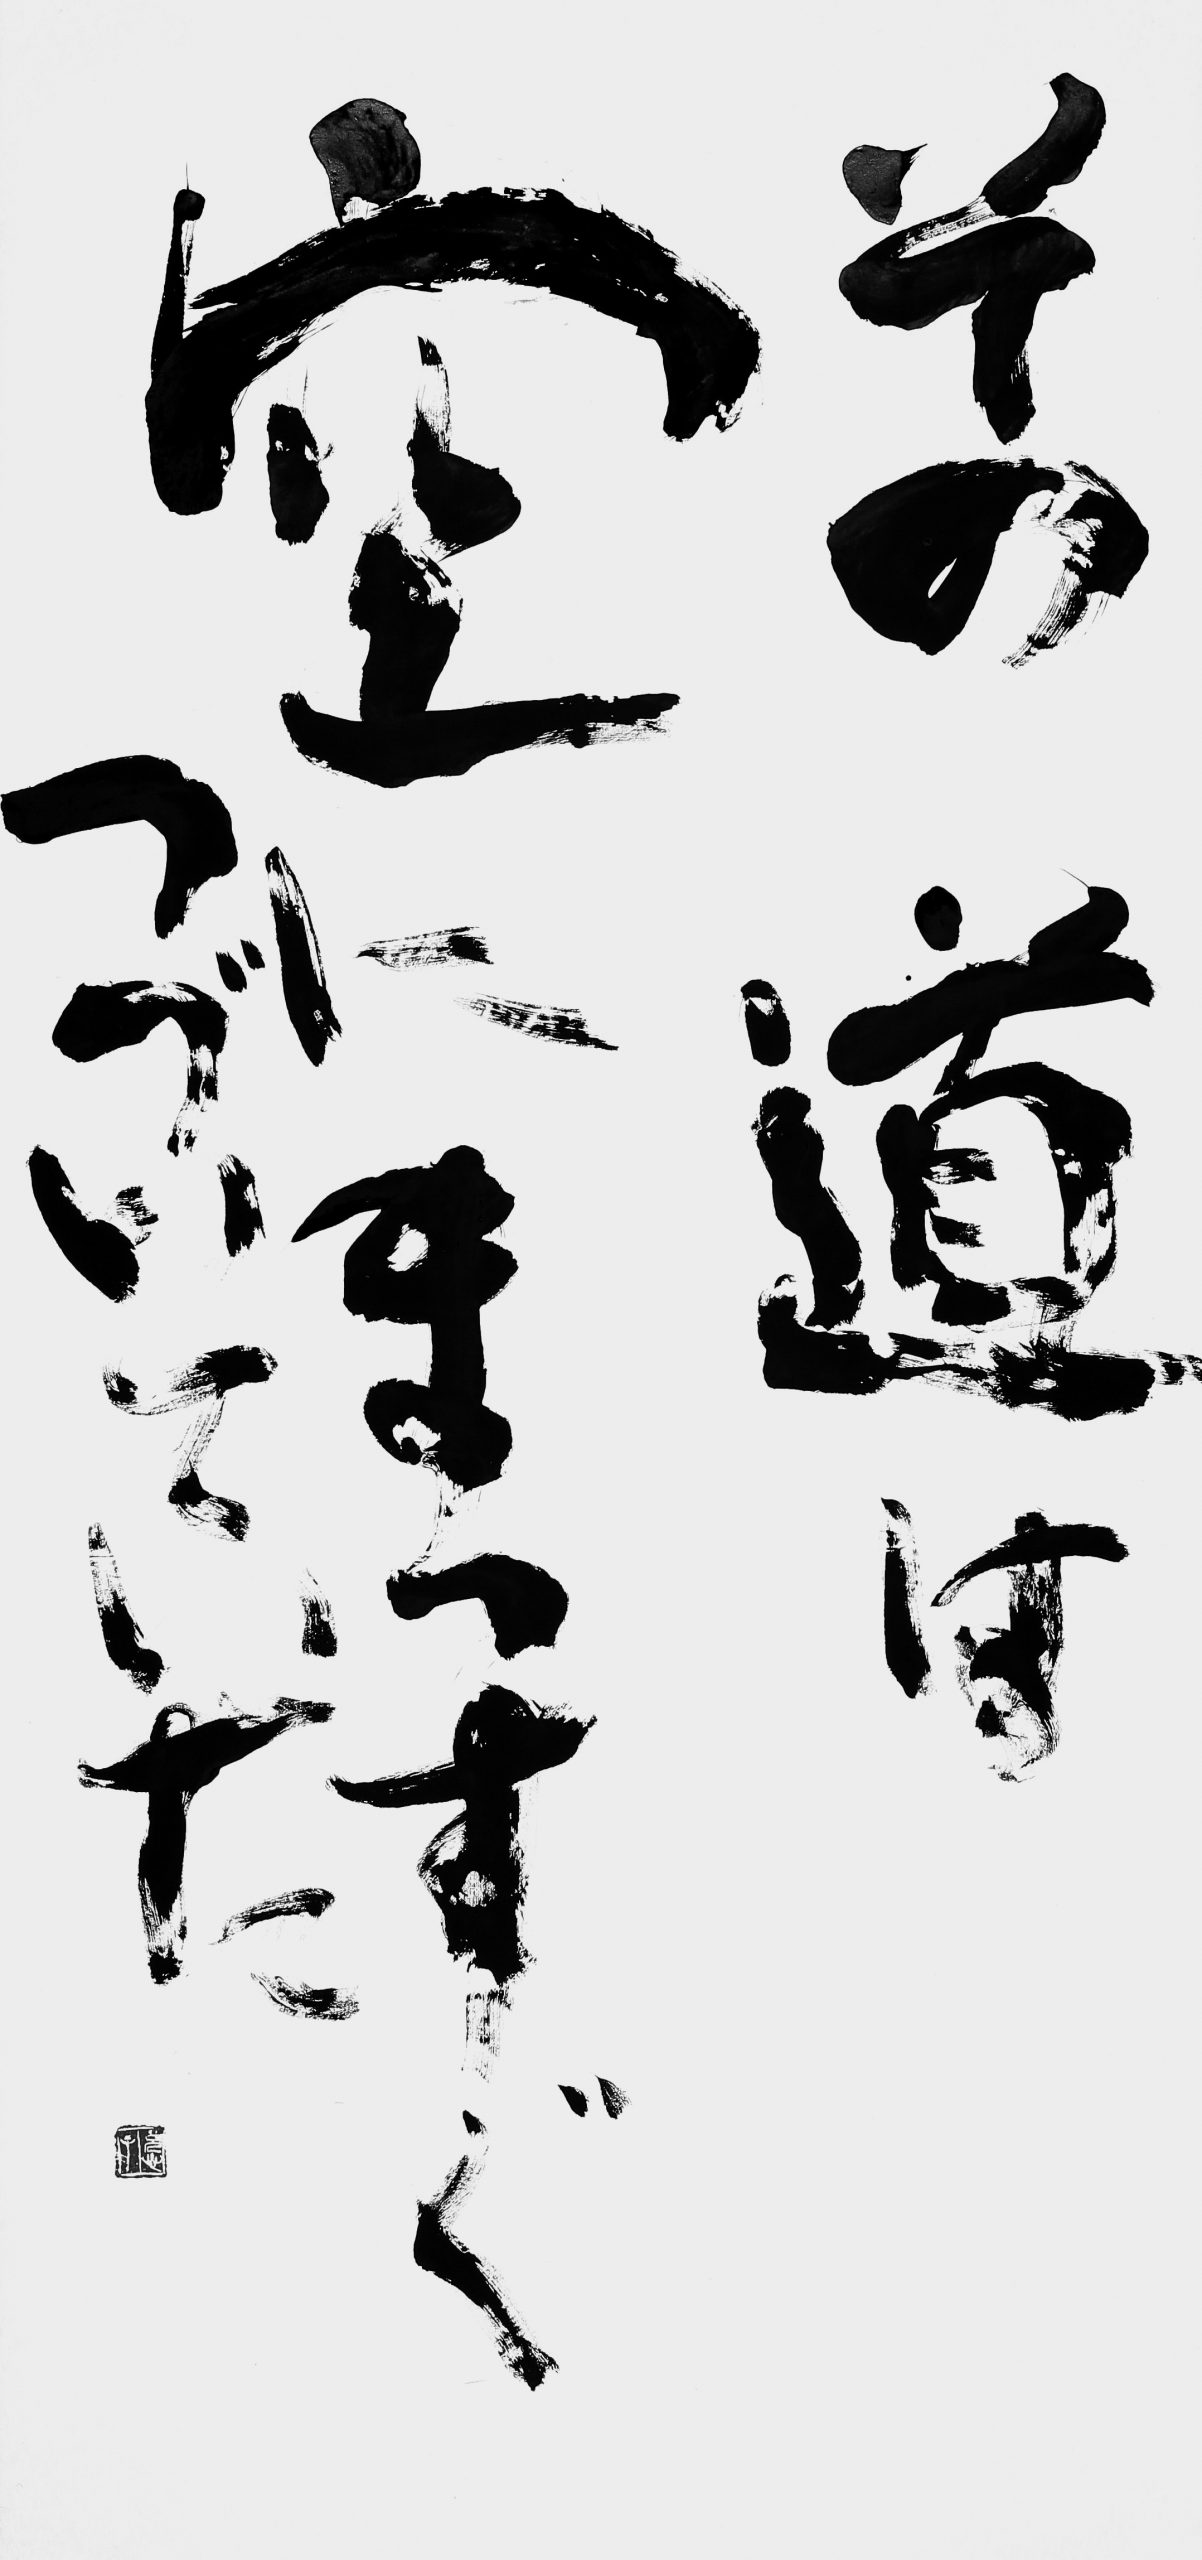 その道は
空にまっすぐ
つづいていた